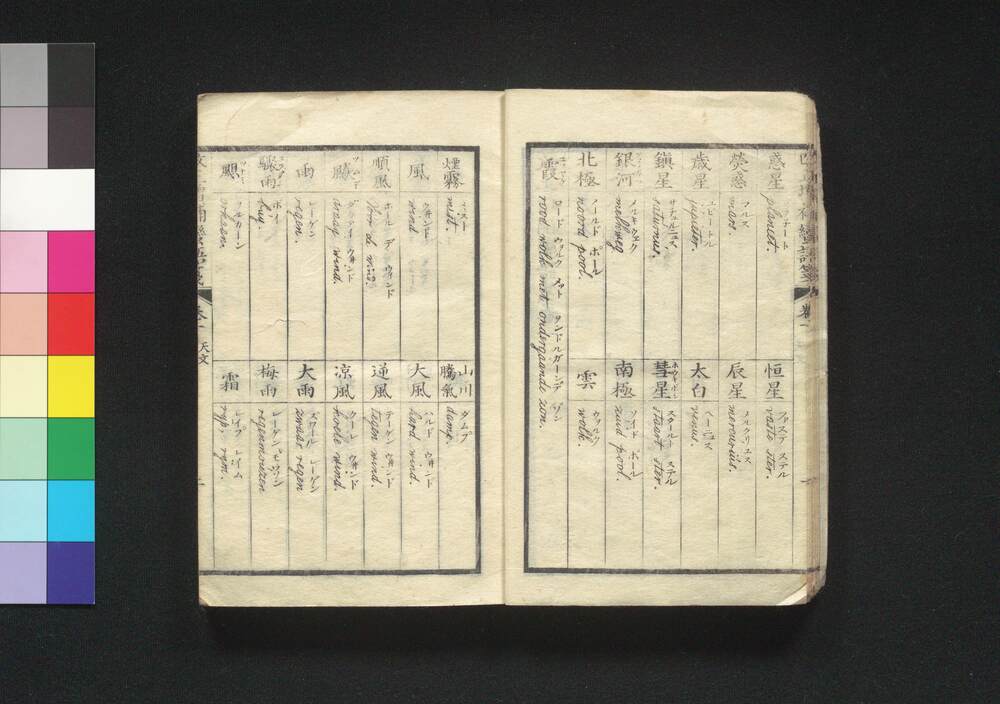 惑星
プラネート
planeet.
恒星
ファステ ステル
vaste ster.
熒惑
マルス
mars.
辰星
メルクリユス
mercurius.
歳星
ユピートル
jupiter.
太白
ヘーニュス
venus.
鎮星
サチュルニュス
saturnus.
彗星
ホウキボシ
スタールト ステル
staart ster.
銀河
メルキウェク
melkweg
南極
ソイド ポール
zuid pool.
北極
ノールド ポール
noord pool.
雲
ウヲルク
wolk.
霞
ロード ウヲルク メット ヲンドルガーンデ ゾン
rood wolk met ondergaande zon.
煙霧
ミスト
mist.
山川騰氣
ダムプ
damp.
風
ウヰンド
wind
大風
ハルド ウヰンド
hard wind.
順風
ホール デ ウィンド
Voor de wind.
逆風
テーゲン ウヰンド
tegen wind.
ウヰンド
wind.
凉風
クーレ ウヰンド
koele wind.
雨
レーゲン
regen.
大雨
ズワール レーゲン
zwaar regen
驟雨
ボイ
buy.
梅雨
レーゲン モウソン
regenmoezon
霜
レイプ レイム
ryp. rym.
卷一
天文
卷一